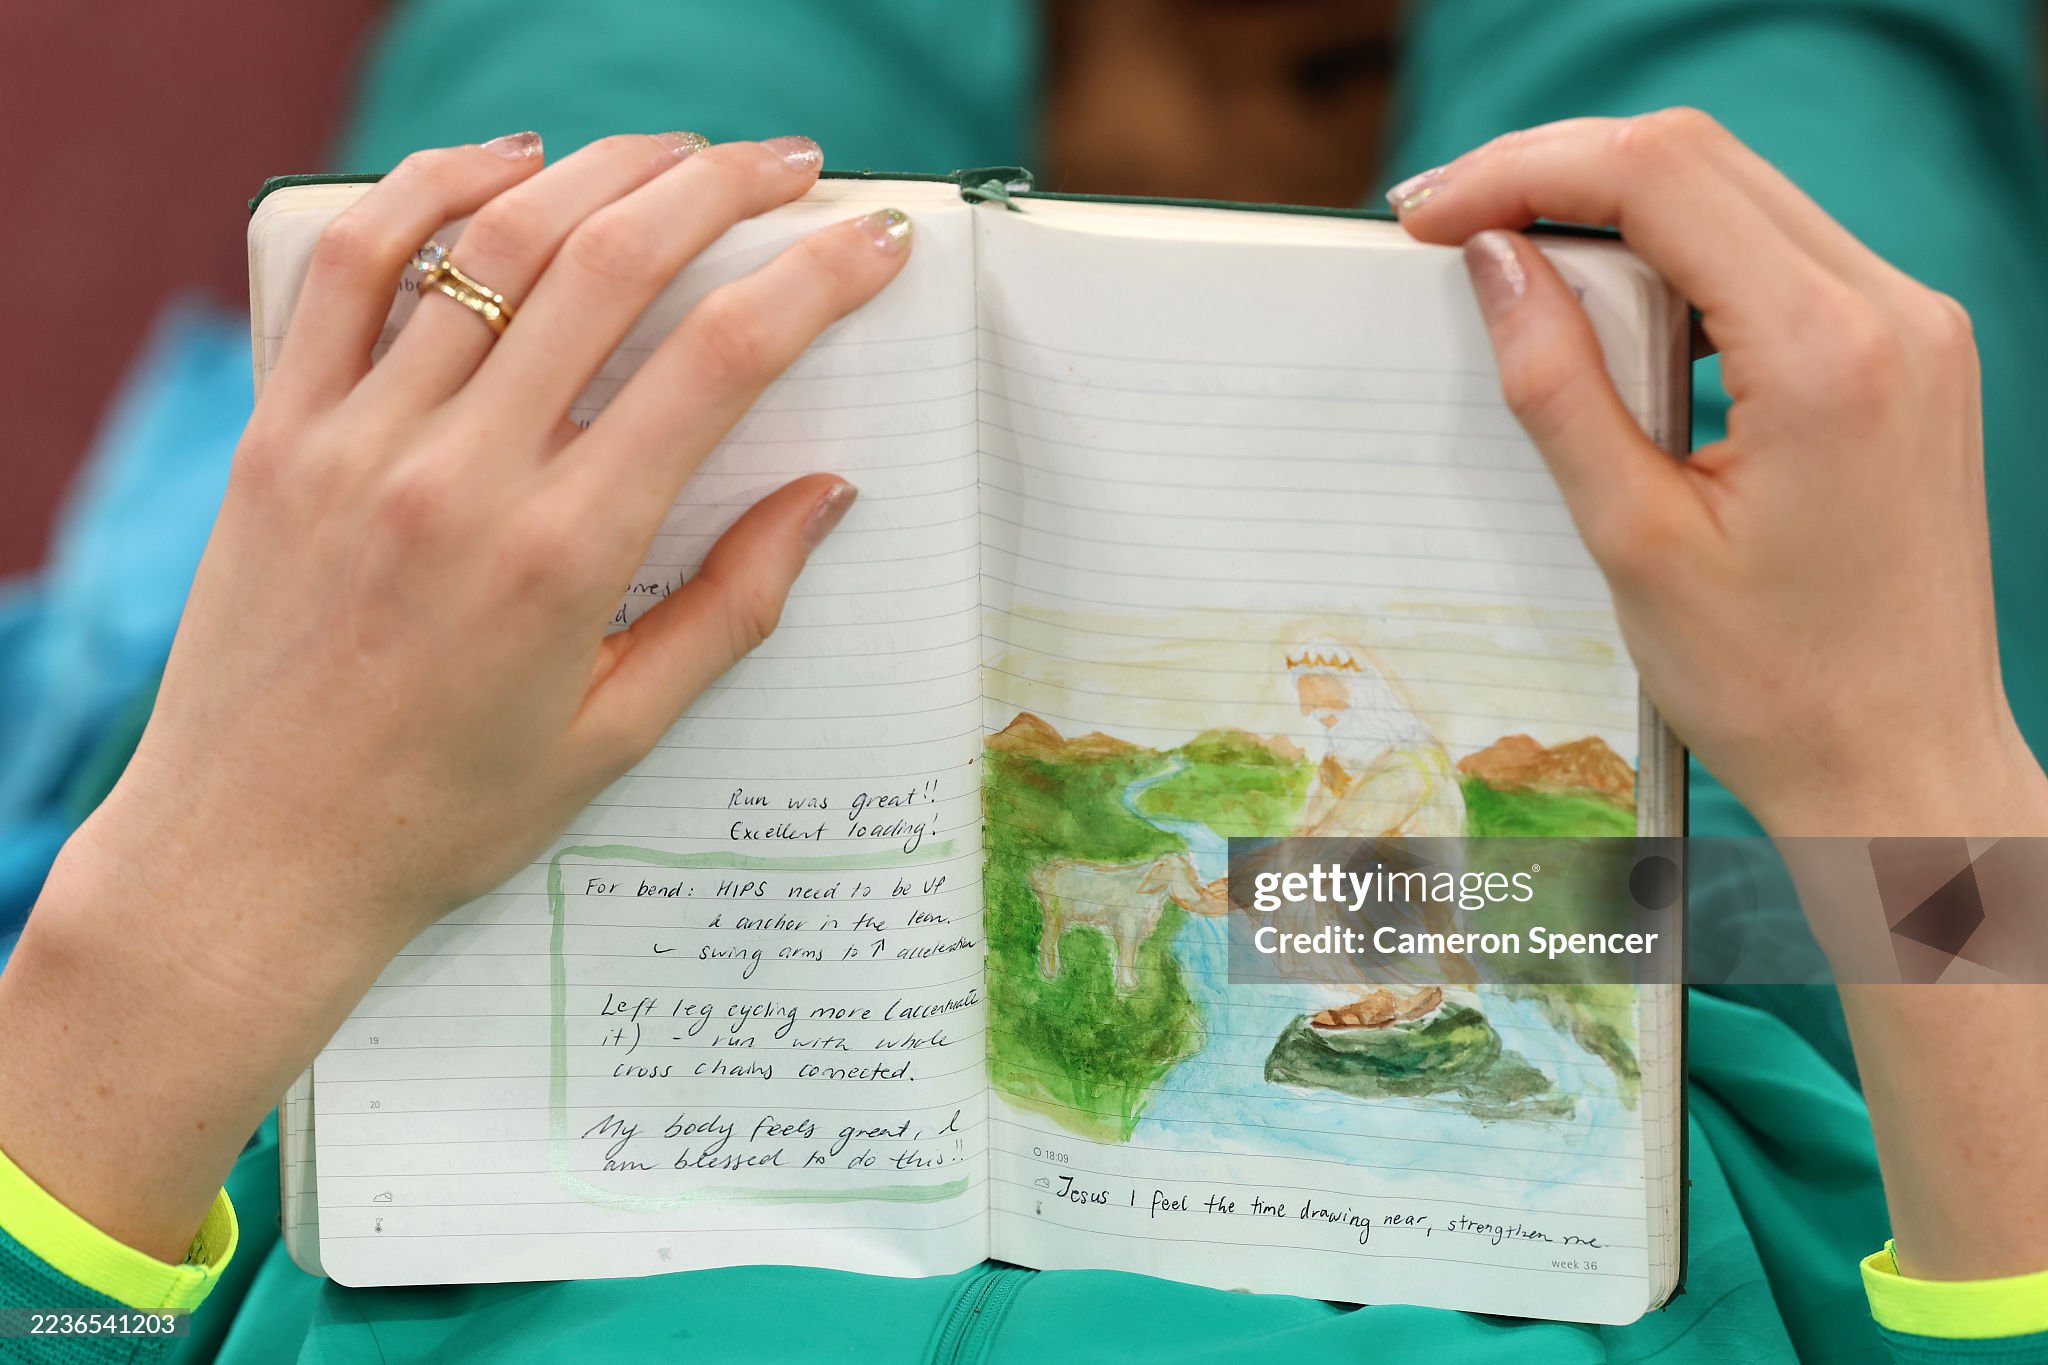 Run was great!!
Excellent loading!
For bend: HIPS need to be up
& anchor in the lean.
swing arms to ↑ acceleration
Left leg cycling more (accentuate
it) - run with whole
cross chains connected.
My body feels great, I
am blessed to do this!!
19
20
18:09
Jesus I feel the time drawing near, strengthen me.
week 36
gettyimages®
Credit: Cameron Spencer
2236541203